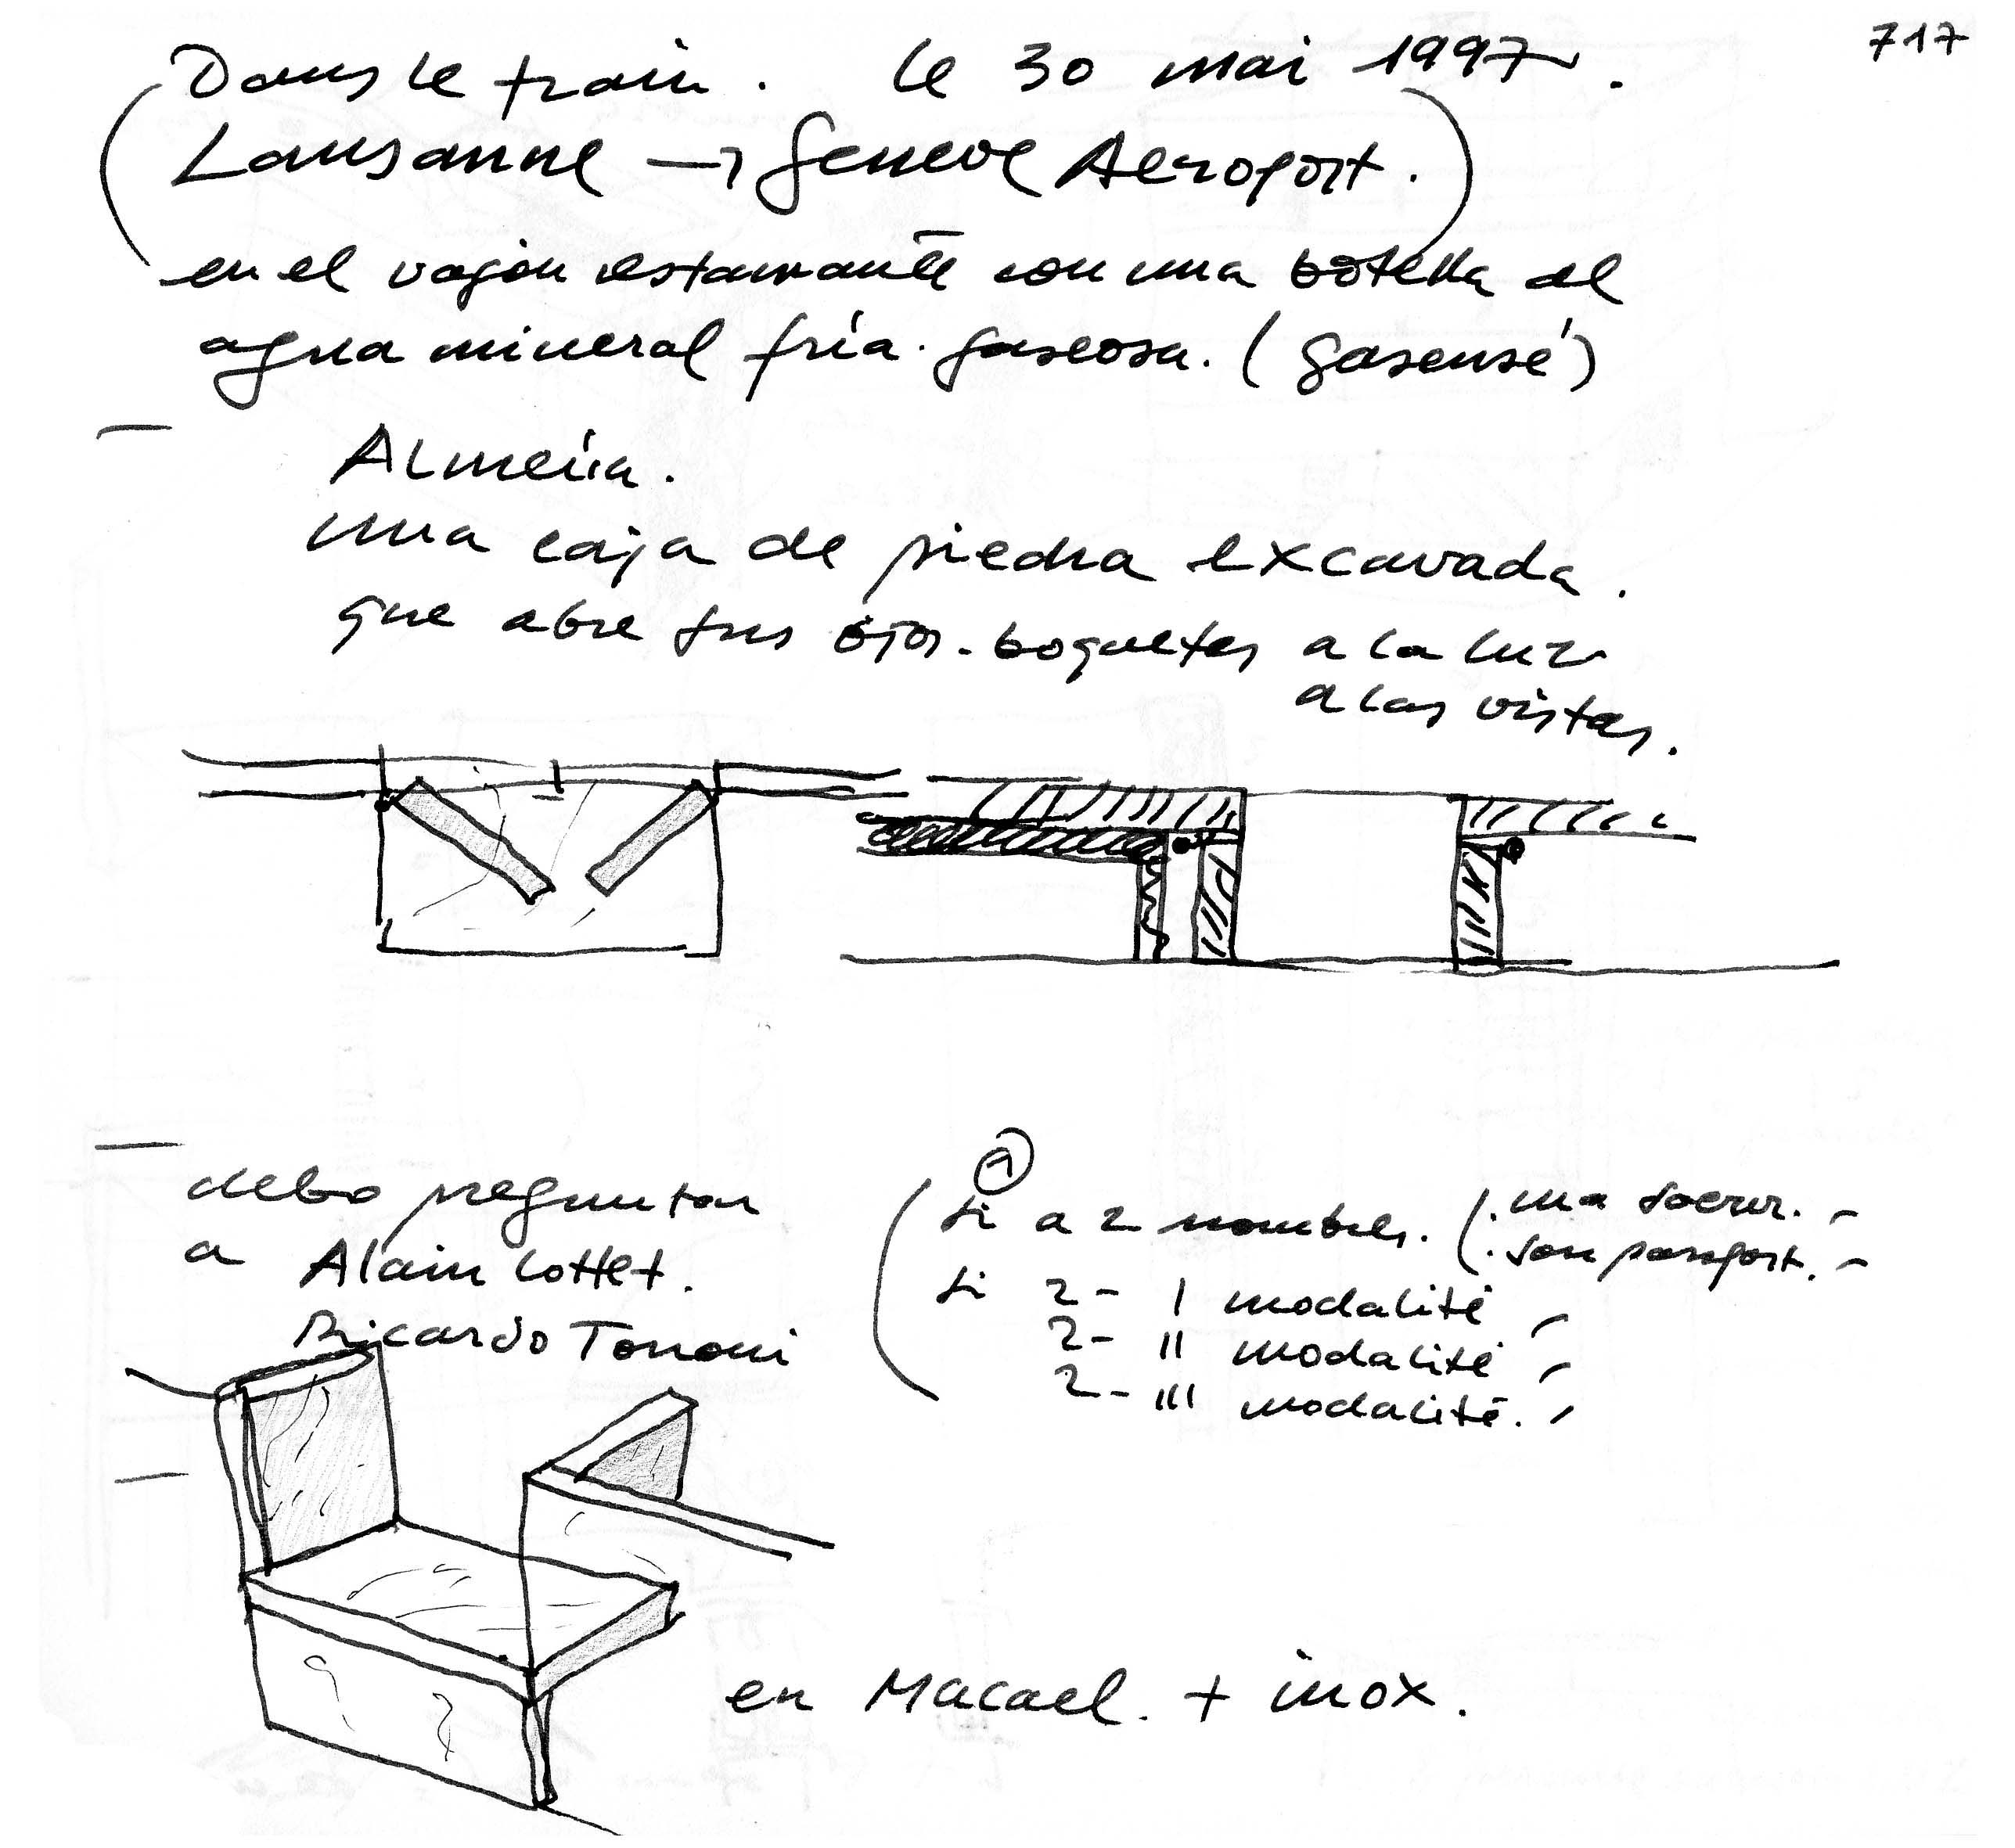 717
Dans le train. le 30 mai 1997.
(Lausanne → Geneve Aeroport.)
en el vagón restaurante con una botella de
agua mineral fría. gaseosa. (gaseusé)
Almería.
una caja de piedra excavada.
que abre sus ojos-boquetes a la luz
a las vistas.
debo preguntar
a Alain Cottet.
Ricardo Tononi
1
si a 2 nombres. (. ma soeur.
. son passport.
si 2 - I modalité
2 - II modalité
2 - III modalité.
en Macael. + inox.